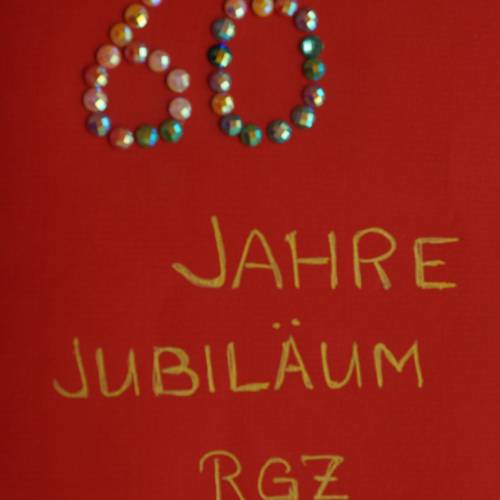 60
JAHRE
JUBILÄUM
RGZ